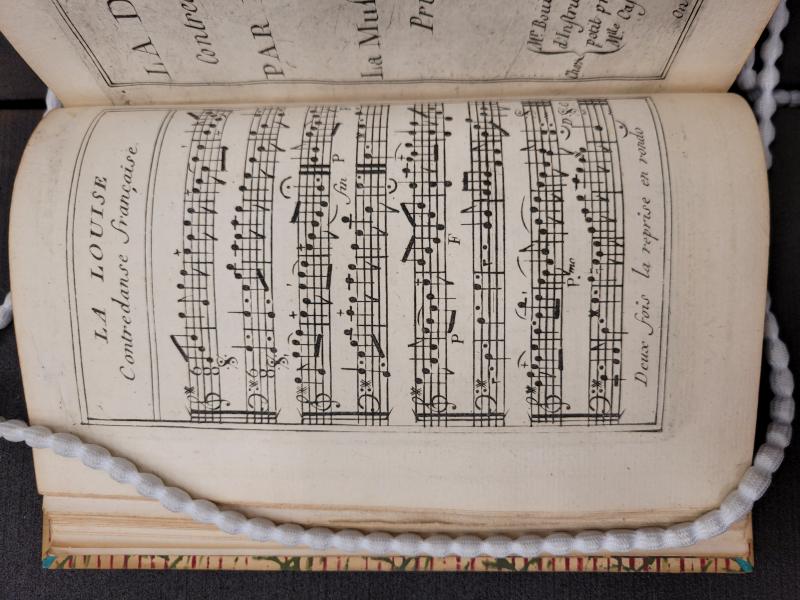 LA D
Contre
PAR
La Mus
Pri
Mr Bou
d'Instru
petit pr
Mlle Cas
LA LOUISE
Contredanse française.
P
fin P
P F
Pmo
Deux fois la reprise en rondo